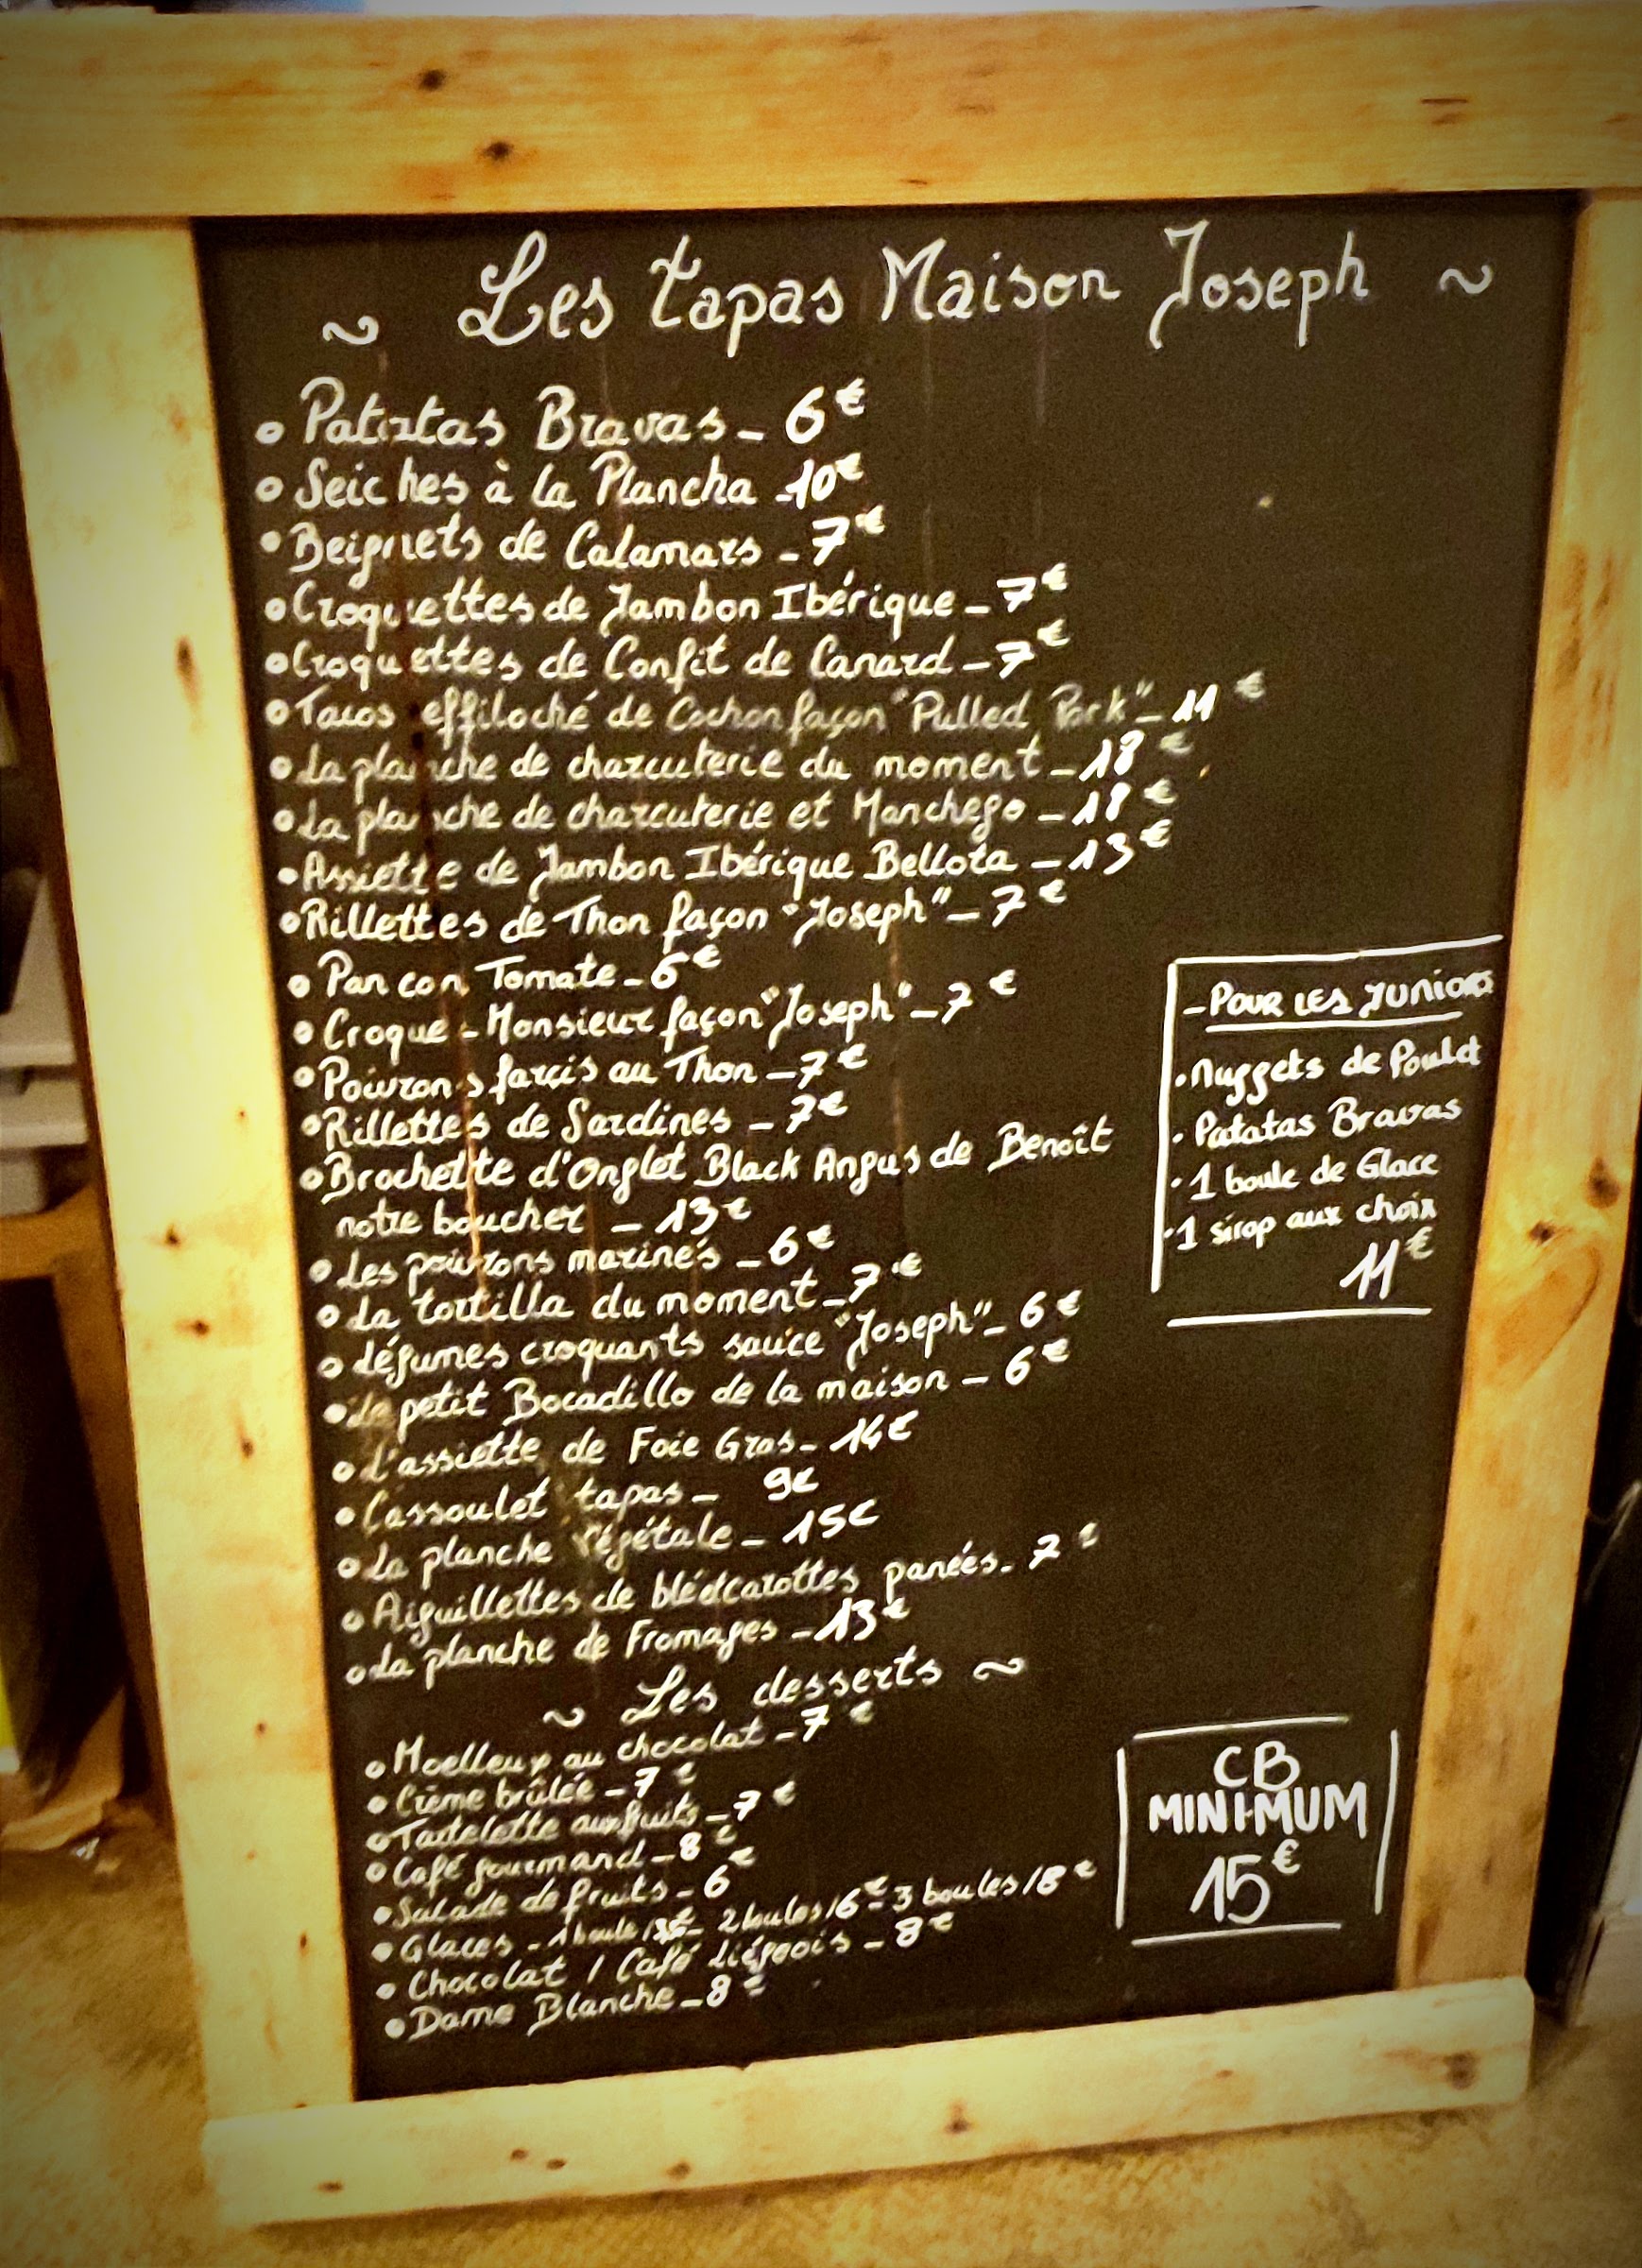 ~ Les tapas Maison Joseph ~
• Patatas Bravas - 6€
• Seiches à la Plancha - 10€
• Beignets de Calamars - 7€
• Croquettes de Jambon Ibérique - 7€
• Croquettes de Confit de Canard - 7€
• Tacos effiloché de Cochon façon "Pulled Pork" - 11€
• La planche de charcuterie du moment - 18€
• La planche de charcuterie et Manchego - 18€
• Assiette de Jambon Ibérique Bellota - 13€
• Rillettes de Thon façon "Joseph" - 7€
• Pan con Tomate - 6€
• Croque-Monsieur façon "Joseph" - 7€
• Poivrons farcis au Thon - 7€
• Rillettes de Sardines - 7€
• Brochette d'Onglet Black Angus de Benoît
notre boucher - 13€
• Les poivrons marinés - 6€
• La tortilla du moment - 7€
• Légumes croquants sauce "Joseph" - 6€
• Le petit Bocadillo de la maison - 6€
• L'assiette de Foie Gras - 14€
• Cassoulet tapas - 9€
• La planche végétale - 15€
• Aiguillettes de blé&carottes panées - 7€
• La planche de Fromages - 13€
~ Les desserts ~
• Moelleux au chocolat - 7€
• Crème brûlée - 7€
• Tartelette aux fruits - 7€
• Café gourmand - 8€
• Salade de fruits - 6€
• Glaces - 1 boule / 3€ - 2 boules / 6€ - 3 boules / 8€
• Chocolat / Café Liégeois - 8€
• Dame Blanche - 8€
- POUR LES JUNIORS
• Nuggets de Poulet
• Patatas Bravas
• 1 boule de Glace
• 1 sirop aux choix
11€
CB
MINIMUM
15€